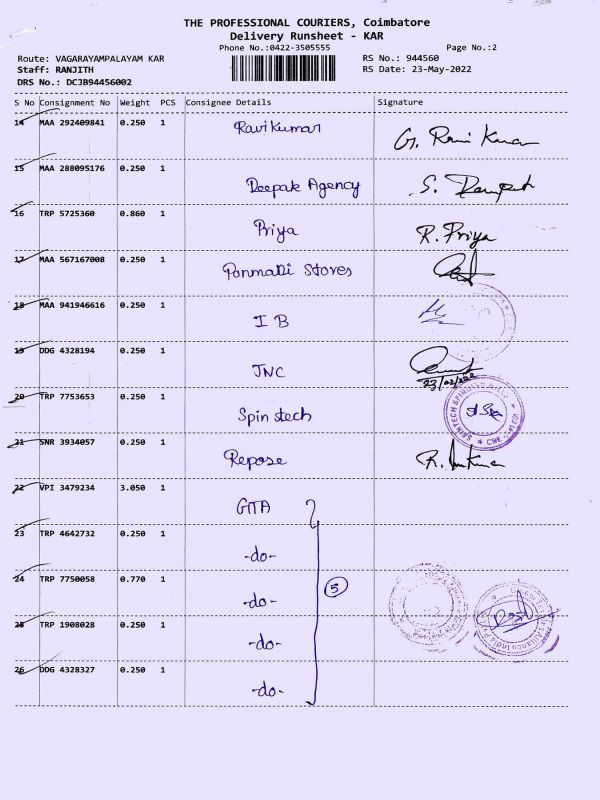 THE PROFESSIONAL COURIERS, Coimbatore
Delivery Runsheet - KAR
Phone No.:0422-3505555
Page No.:2
Route: VAGARAYAMPALAYAM KAR
RS No.: 944560
Staff: RANJITH
RS Date: 23-May-2022
DRS No.: DCJB94456002
S No Consignment No Weight PCS Consignee Details Signature
14 MAA 292409841 0.250 1 Ravikumar G. Ravi Kumar
15 MAA 288095176 0.250 1 Deepak Agency S.
16 TRP 5725360 0.860 1 Priya R. Priya
17 MAA 567167008 0.250 1 Ponmalli Stores
18 MAA 941946616 0.250 1 I B
19 DDG 4328194 0.250 1 JNC
20 TRP 7753653 0.250 1 Spin tech
21 SNR 3934057 0.250 1 Repose R.
22 VPI 3479234 3.050 1 GITA
23 TRP 4642732 0.250 1 -do-
24 TRP 7750058 0.770 1 -do- 5
25 TRP 1908028 0.250 1 -do-
26 DDG 4328327 0.250 1 -do-